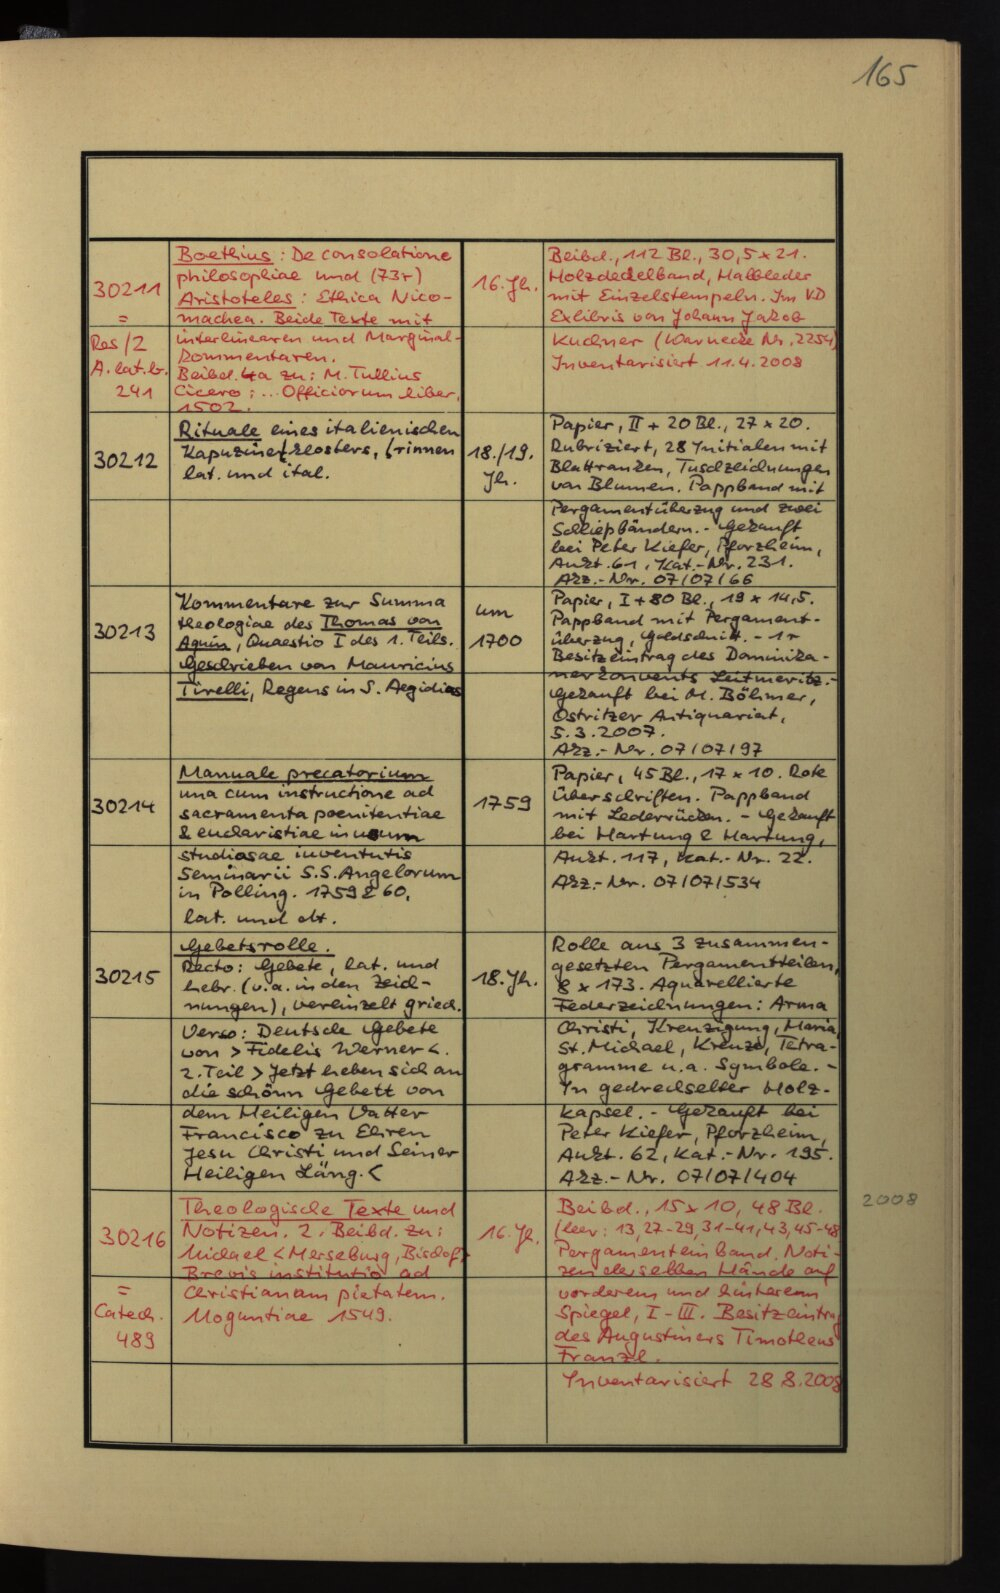 165
30211
=
Res/2
A.lat.b.
241
Boethius: De consolatione
philosophiae und (73r)
Aristoteles: Ethica Nico-
machea. Beide Texte mit
interlinearen und Marginal-
kommentaren.
Beibd. 4a zu: M. Tullius
Cicero: ... Officiorum liber,
1502.
16. Jh.
Beibd., 112 Bl., 30,5 x 21.
Holzdeckelband, Halbleder
mit Einzelstempeln. Im VD
Exlibris von Johann Jakob
Kuchner (Warnecke Nr. 2254)
Inventarisiert 11.4.2008
30212
Rituale eines italienischen
Kapuzinerklosters,
lat. und ital.
18./19.
Jh.
Papier, II + 20 Bl., 27 x 20.
Rubriziert, 28 Initialen mit
Blattranken, Tuschzeichnungen
von Blumen. Pappband mit
Pergamentüberzug und zwei
Schließbändern. - Gekauft
bei Peter Kiefer, Pforzheim,
Aukt. 61, Kat.-Nr. 231.
Akz.-Nr. 07/07/66
30213
Kommentare zur Summa
theologiae des Thomas von
Aquin, Quaestio I des 1. Teils.
Geschrieben von Mauricius
Tirelli, Regens in S. Aegidius
um
1700
Papier, I + 80 Bl., 19 x 14,5.
Pappband mit Pergament-
überzug, Goldschnitt. - 1r
Besitzeintrag des Dominika-
nerkonvents Leitmeritz. -
Gekauft bei M. Böhmer,
Ostritzer Antiquariat,
5.3.2007.
Akz.-Nr. 07/07/97
30214
Manuale precatorium
una cum instructione ad
sacramenta poenitentiae
& eucharistiae in usum
studiosae iuventutis
Seminarii S.S. Angelorum
in Polling. 1759 & 60.
lat. und dt.
1759
Papier, 45 Bl., 17 x 10. Rote
Überschriften. Pappband
mit Lederrücken. - Gekauft
bei Hartung & Hartung,
Aukt. 117, Kat.-Nr. 22.
Akz.-Nr. 07/07/534
30215
Gebetsrolle.
Recto: Gebete, lat. und
hebr. (v.a. in den Zeich-
nungen), vereinzelt griech.
Verso: Deutsche Gebete
von >Fidelis Werner<.
2. Teil >Jetzt heben sich an
die schönn Gebett von
dem Heiligen Vatter
Francisco zu Ehren
Jesu Christi und Seiner
Heiligen Läng.<
18. Jh.
Rolle aus 3 zusammen-
gesetzten Pergamentteilen,
8 x 173. Aquarellierte
Federzeichnungen: Arma
Christi, Kreuzigung, Maria,
St. Michael, Kreuze, Tetra-
gramme u.a. Symbole. -
In gedrechselter Holz-
kapsel. - Gekauft bei
Peter Kiefer, Pforzheim,
Aukt. 62, Kat.-Nr. 195.
Akz.-Nr. 07/07/404
30216
=
Catech.
489
Theologische Texte und
Notizen. 2. Beibd. zu:
Michael <Merseburg, Bischof>
Brevis institutio ad
Christianam pietatem.
Moguntiae 1549.
16. Jh.
Beibd., 15 x 10, 48 Bl.
(leer: 13, 27-29, 31-41, 43, 45-48
Pergamenteinband. Noti-
zen derselben Hände auf
vorderem und hinterem
Spiegel, I-III. Besitzeintrag
des Augustiners Timotheus
Franzl.
Inventarisiert 28.8.2008
2008